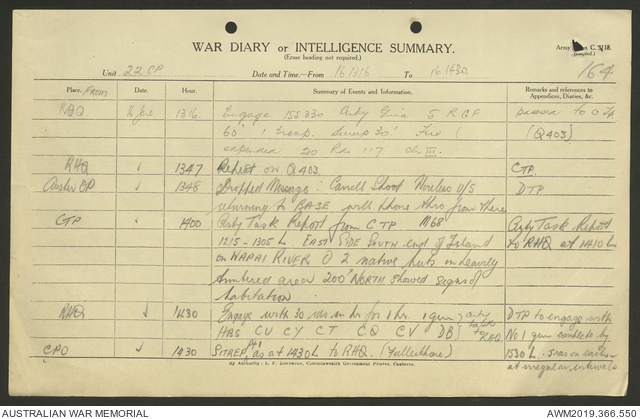 WAR DIARY or INTELLIGENCE SUMMARY.
(Erase heading not required.)
Army Form C. 2118.
164
Unit 22 CP Date and Time.—From 161316 To 161430
Place. From Date. Hour. Summary of Events and Information. Remarks and references to Appendices, Diaries, &c.
RHQ 16 June 1316 Engage 155330 Arty Guns 5 RGF passed to C Tp
60° 1 Troop. 30' Fire (Q403)
expended 20 Rds 117
RHQ 1347 Report on Q403. CTP.
Auster OP 1348 Dropped Message: Cancell Shoot Wireless U/S DTP
returning to BASE will phone thro from there
CTP 1400 Arty Task Report from CTP M68 Arty Task Report
1215 - 1305 L EAST SIDE SOUTH end of Island to RHQ at 1410 L
on WAPAI RIVER 2 native huts in heavily
timbered area 200° NORTH showed signs of
habitation.
RHQ 1430 Engage with 30 rds in hr for 1 hr. 1 gun arty DTP to engage with
HAS CU CY CT CQ CV DB to RHQ No 1 gun by
CPO 1430 SITREP as at 1430 L to RHQ. (Fullerphone) 1530 L.
at irregular intervals
By Authority: L. F. Johnston, Commonwealth Government Printer, Canberra.
AUSTRALIAN WAR MEMORIAL
AWM2019.366.550